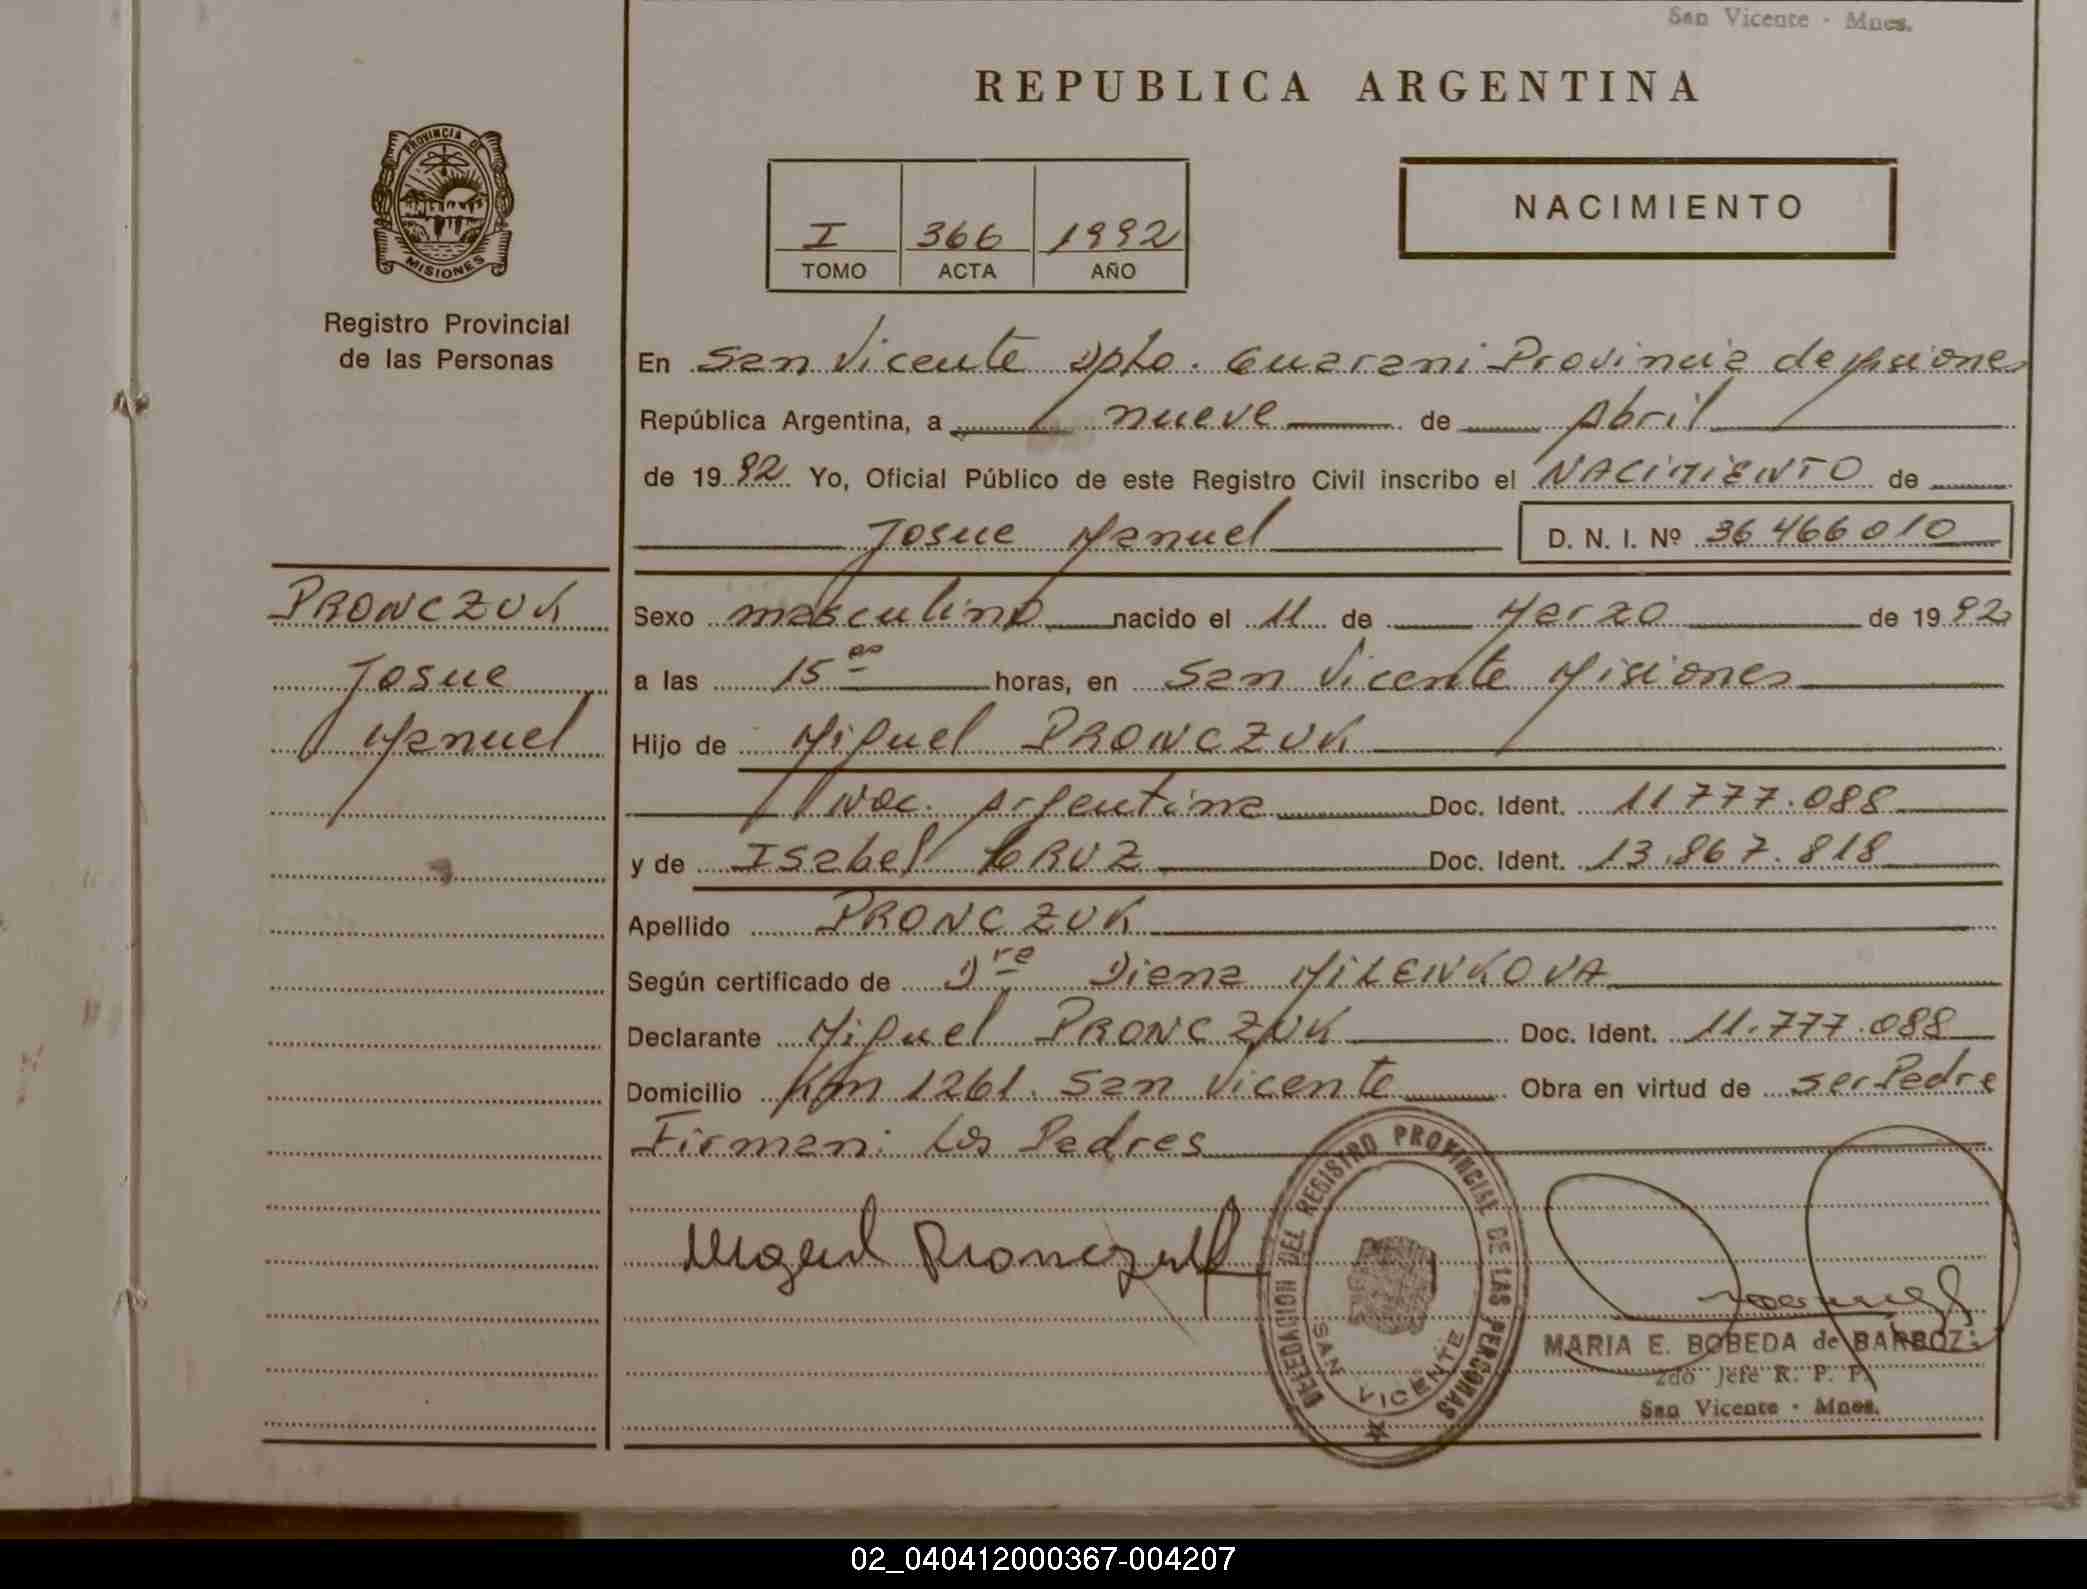 San Vicente - Mnes.
REPUBLICA ARGENTINA
PROVINCIA DE
MISIONES
I 366 1992
TOMO ACTA AÑO
NACIMIENTO
Registro Provincial
de las Personas
PRONCZUK
Josue
Manuel
En San Vicente Dpto. Guarani Provincia de Misiones
República Argentina, a nueve de Abril
de 1992 Yo, Oficial Público de este Registro Civil inscribo el NACIMIENTO de
Josue Manuel D. N. I. Nº 36466010
Sexo masculino nacido el 11 de Marzo de 1992
a las 15 horas, en San Vicente Misiones
Hijo de Miguel PRONCZUK
Nac. Argentina Doc. Ident. 11777.088
y de Isabel CRUZ Doc. Ident. 13.867.818
Apellido PRONCZUK
Según certificado de Dra Diana MILENKOVA
Declarante Miguel PRONCZUK Doc. Ident. 11.777.088
Domicilio Km 1261. San Vicente Obra en virtud de ser Padre
Firman: Los Padres
Miguel Pronczuk
DELEGACION DEL REGISTRO PROVINCIAL DE LAS PERSONAS
SAN VICENTE
MARIA E. BOBEDA de BARBOZ
2do Jefe R. P. P.
San Vicente - Mnes.
02_040412000367-004207